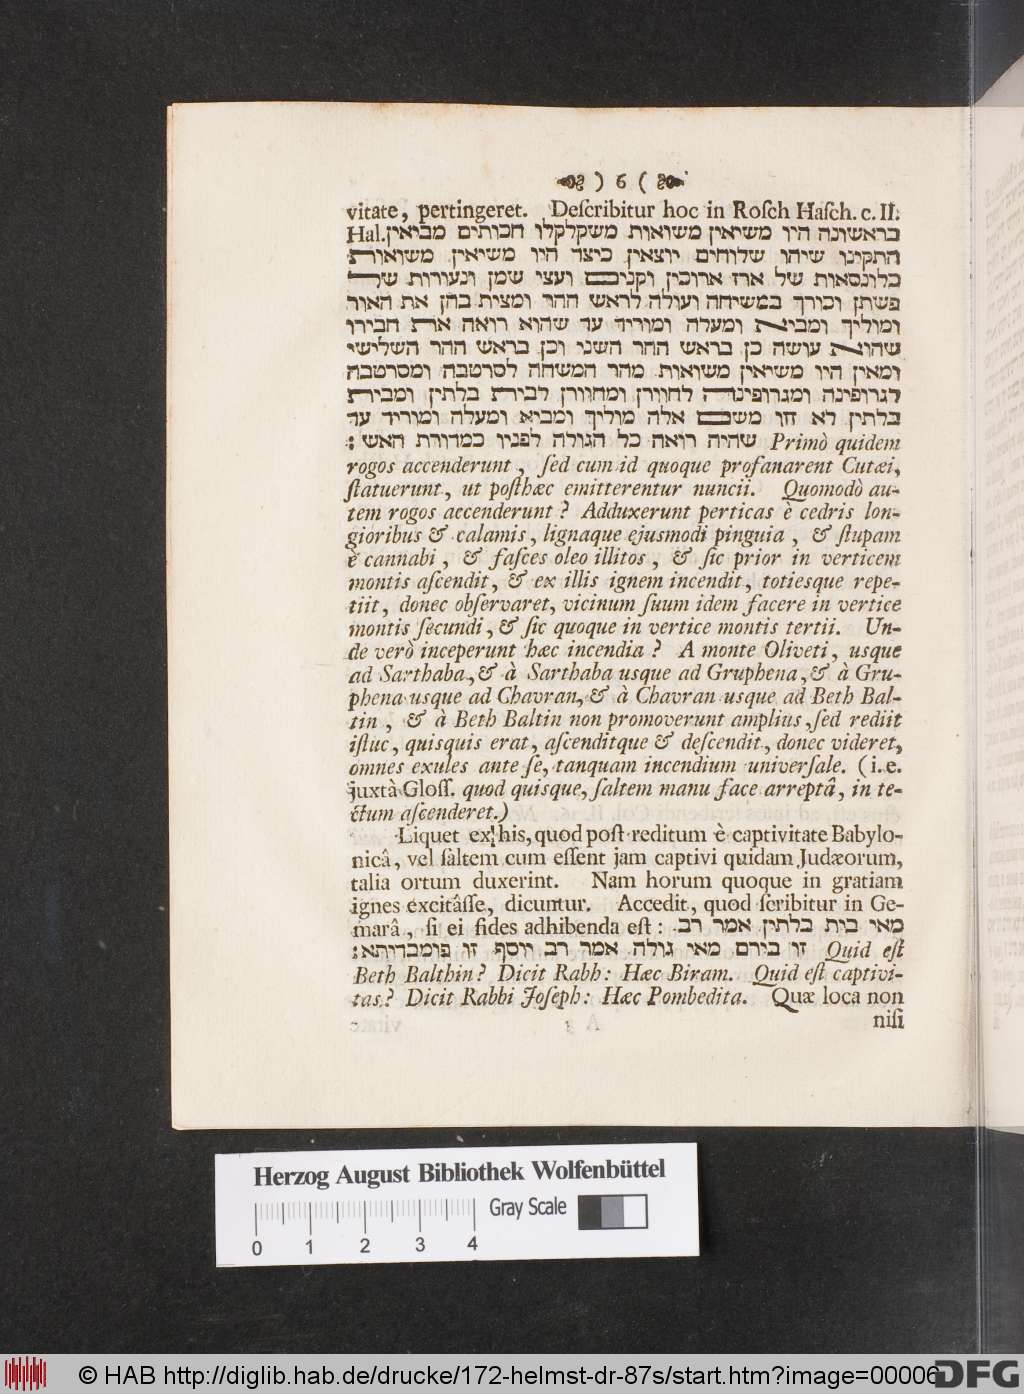 ) 6 (
vitate, pertingeret. Deſcribitur hoc in Roſch Haſch. c. II.
Hal. בראשונה היו משיאין משואות משקלקלו הכותים מביאין
התקינו שיהו שלוחים יוצאין כיצד היו משיאין משואות
כלונסאות של ארז ארוכין וקנים ועצי שמן ונעורות של
פשתן וכורך במשיחה ועולה לראש ההר ומצית בהן את האור
ומוליך ומביא ומעלה ומוריד עד שהוא רואה את חבירו
שהוא עושה כן בראש ההר השני וכן בראש ההר השלישי
ומאין היו משיאין משואות מהר המשחה לסרטבה ומסרטבה
לגרופינה ומגרופינה לחוורן ומחוורן לבית בלתין ומבית
בלתין לא זזו משם אלה מוליך ומביא ומעלה ומוריד עד
שהיה רואה כל הגולה לפניו כמדורת האש : Primò quidem
rogos accenderunt, ſed cum id quoque profanarent Cutæi,
ſtatuerunt, ut poſthæc emitterentur nuncii. Quomodò au-
tem rogos accenderunt? Adduxerunt perticas è cedris lon-
gioribus & calamis, lignaque ejusmodi pinguia, & ſtupam
è cannabi, & faſces oleo illitos, & ſic prior in verticem
montis aſcendit, & ex illis ignem incendit, totiesque repe-
tiit, donec obſervaret, vicinum ſuum idem facere in vertice
montis ſecundi, & ſic quoque in vertice montis tertii. Un-
de verò inceperunt hæc incendia? A monte Oliveti, usque
ad Sarthaba, & à Sarthaba usque ad Gruphena, & à Gru-
phena usque ad Chavran, & à Chavran usque ad Beth Bal-
tin, & à Beth Baltin non promoverunt amplius, ſed rediit
iſtuc, quisquis erat, aſcenditque & deſcendit, donec videret,
omnes exules ante ſe, tanquam incendium univerſale. (i. e.
juxtà Gloſſ. quod quisque, ſaltem manu face arreptâ, in te-
ctum aſcenderet.)
Liquet ex his, quod poſt reditum è captivitate Babylo-
nicâ, vel ſaltem cum eſſent jam captivi quidam Judæorum,
talia ortum duxerint. Nam horum quoque in gratiam
ignes excitâſſe, dicuntur. Accedit, quod ſcribitur in Ge-
marâ, ſi ei fides adhibenda eſt: מאי בית בלתין אמר רב
זו בירם מאי גולה אמר רב יוסף זו פומבדיתא: Quid eſt
Beth Balthin? Dicit Rabh: Hæc Biram. Quid eſt captivi-
tas? Dicit Rabbi Joſeph: Hæc Pombedita. Quæ loca non
niſi
Herzog August Bibliothek Wolfenbüttel
Gray Scale
0 1 2 3 4
© HAB http://diglib.hab.de/drucke/172-helmst-dr-87s/start.htm?image=00006
DFG